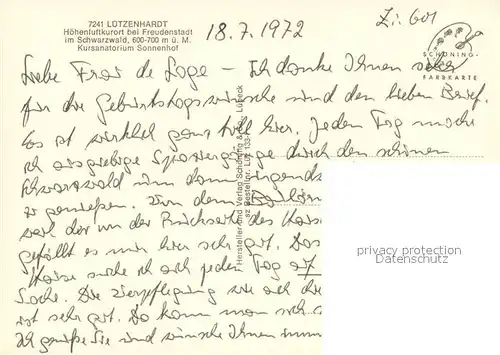 7241 LÜTZENHARDT
Höhenluftkurort bei Freudenstadt
im Schwarzwald, 600-700 m ü. M.
Kursanatorium Sonnenhof
18.7.1972
Zi: 601
SCHÖNING
FARBKARTE
Liebe Frau de Loge – Ich danke Ihnen sehr
für die Geburtstagswünsche und den lieben Brief.
Es ist wirklich ganz toll hier. Jeden Tag mache
ich ausgiebige Spaziergänge durch den schönen
Schwarzwald um dann irgends
zu genießen. Von dem
weil der an der Rückseite des Hauses
gefällt es mir hier sehr gut. Das
Hause suche ich auch jeden Tag auf
Sache. Die Verpflegung wie auch die
ist sehr gut. Da kann man sich
Ich grüße Sie und wünsche Ihnen imm
Hersteller und Verlag Schöning & Co Lübeck
Bestellnr. Lüt 133
privacy protection
delcampe.net